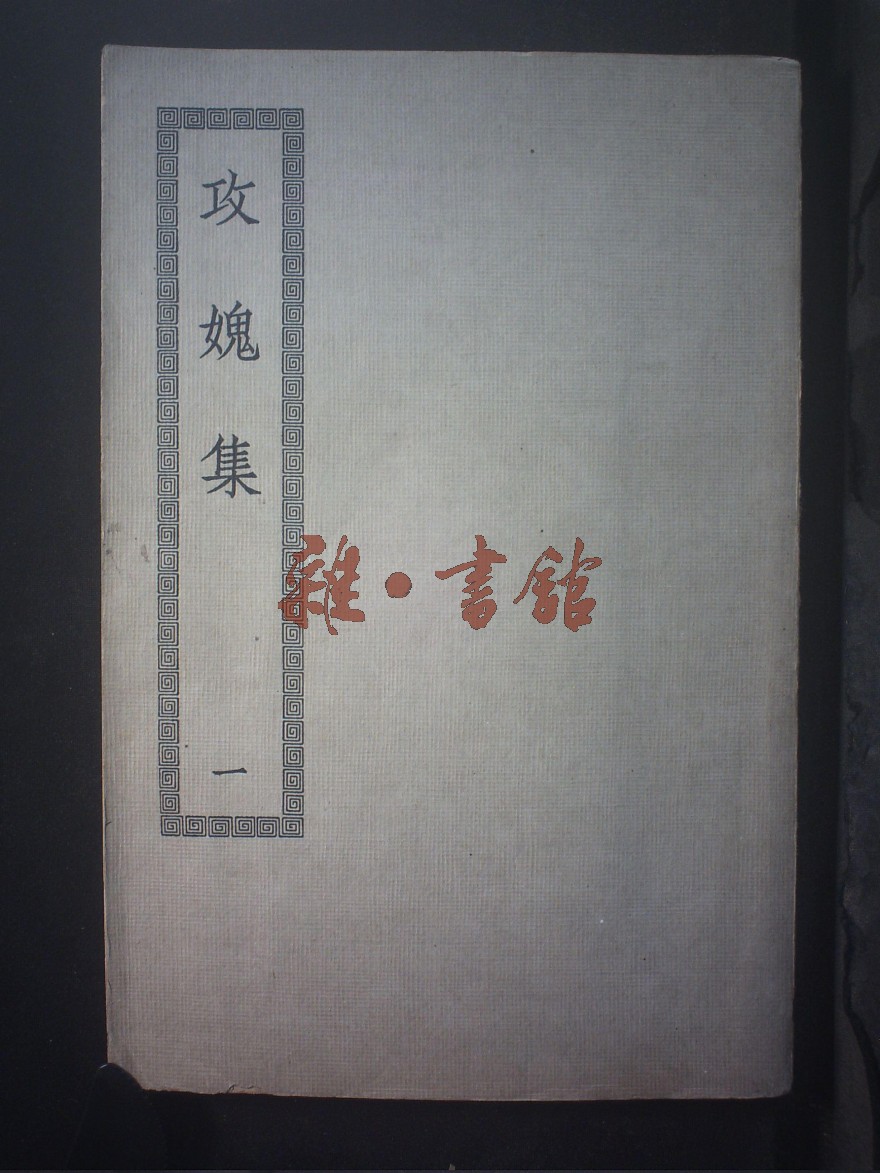 攻媿集
一
雜·書館